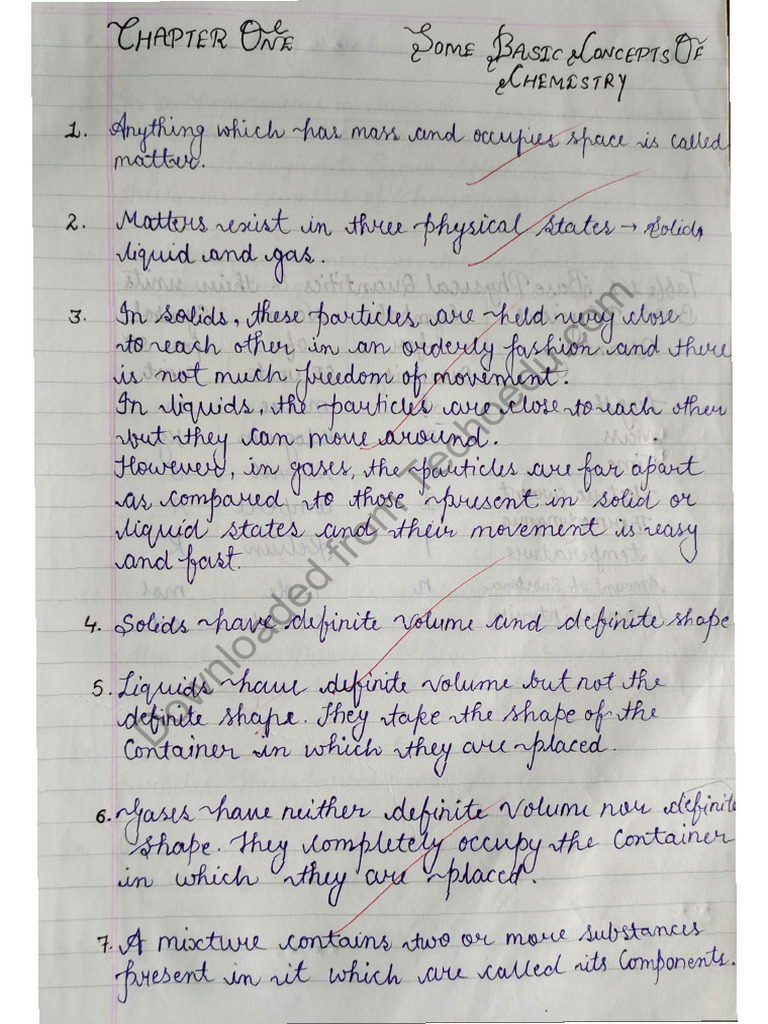 CHAPTER ONE
SOME BASIC CONCEPTS OF
CHEMISTRY
1. Anything which has mass and occupies space is called
matter.
2. Matters exist in three physical states → Solid,
liquid and gas.
3. In solids, these particles are held very close
to each other in an orderly fashion and there
is not much freedom of movement.
In liquids, the particles are close to each other
but they can move around.
However, in gases, the particles are far apart
as compared to those present in solid or
liquid states and their movement is easy
and fast.
4. Solids have definite volume and definite shape
5. Liquids have definite volume but not the
definite shape. They take the shape of the
Container in which they are placed.
6. Gases have neither definite volume nor definite
shape. They completely occupy the Container
in which they are placed.
7. A mixture contains two or more substances
present in it which are called its Components.
Downloaded from: Techoedu.com